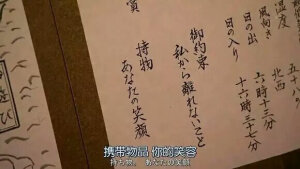 風向き 北西
日の出 六時十三分
日の入り 十六時三十七分
御約束
私から離れないこと
持物
あなたの笑顔
携带物品 你的笑容
持ち物、 あなたの笑顔